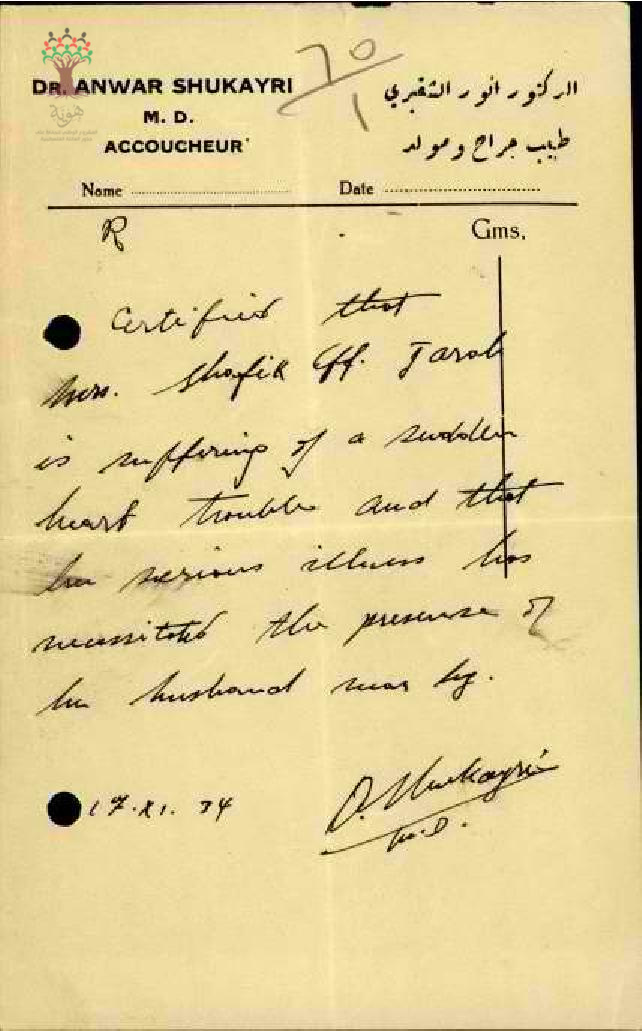 DR. ANWAR SHUKAYRI
M. D.
ACCOUCHEUR
الدكتور انور الشقيري
طبيب جراح ومولد
هوية
70
1
Name
Date
R
Gms.
Certified that
Mrs. Shafik Eff. Farah
is suffering of a sudden
heart trouble and that
her serious illness has
necessitated the presence of
her husband near by.
17.XI.34
A. Shukayri
M.D.